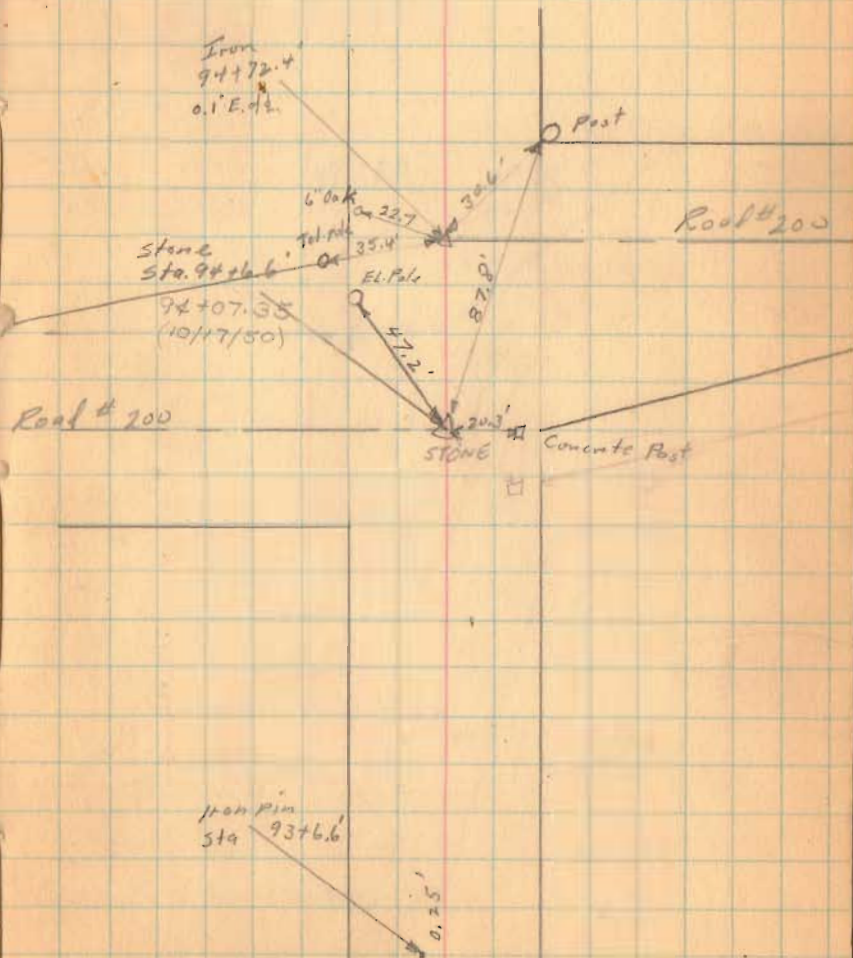 Iron
94+72.4'
0.1' E. of ℄
Post
30.6'
6" Oak
22.7
Road #200
Tel. pole
35.4'
Stone
Sta. 94+6.6'
El. Pole
87.8'
94+07.35
(10/17/50)
47.2'
Road # 200
20.3'
STONE
Concrete Post
Iron Pin
Sta 93+6.6'
0.25'